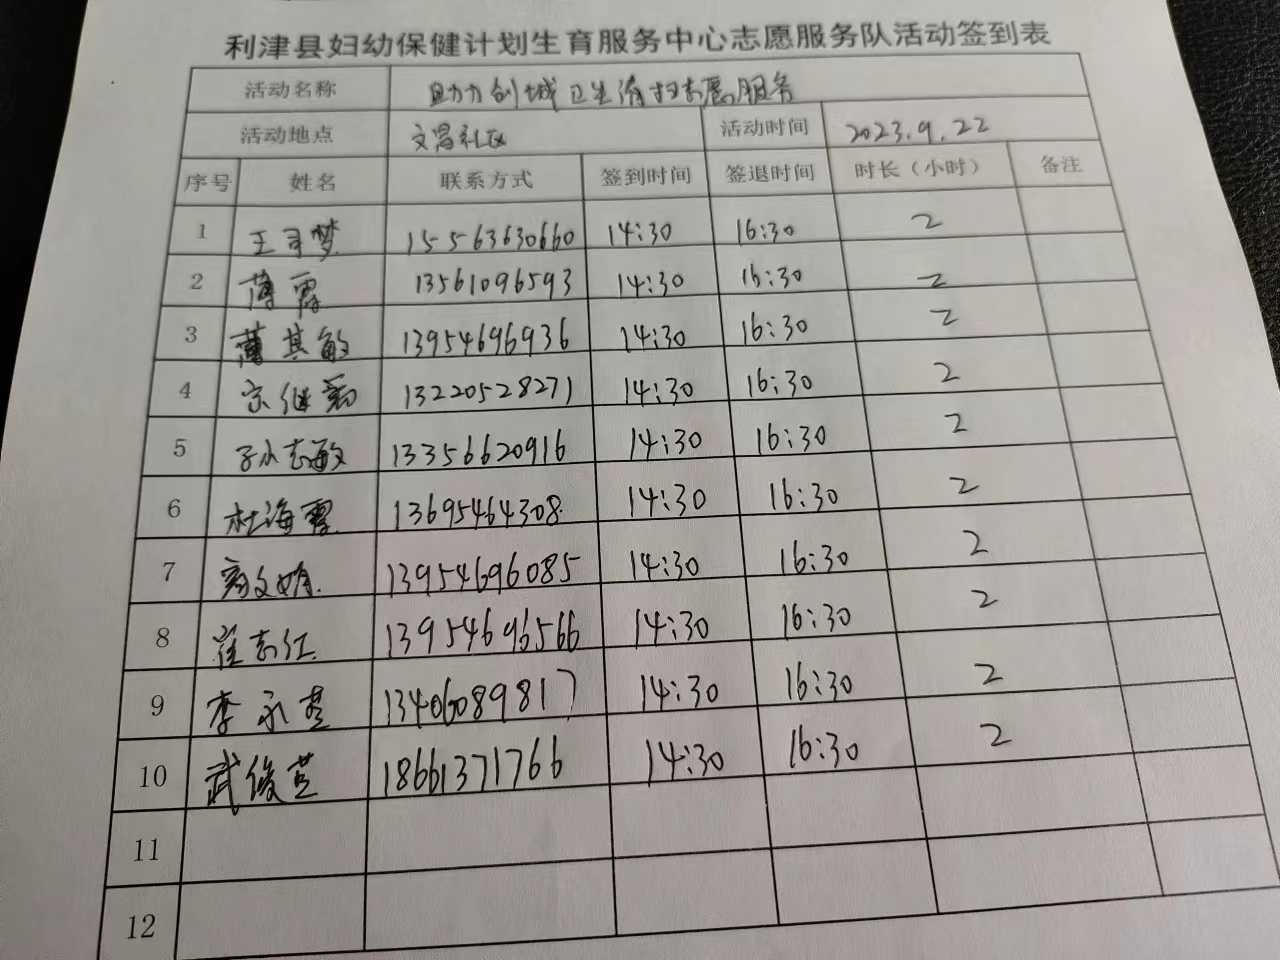 利津县妇幼保健计划生育服务中心志愿服务队活动签到表
活动名称 助力创城卫生清扫志愿服务
活动地点 文昌社区 活动时间 2023.9.22
序号 姓名 联系方式 签到时间 签退时间 时长（小时） 备注
1 王司梦 15563630660 14:30 16:30 2
2 薄霞 13561096593 14:30 16:30 2
3 薄其敏 13954696936 14:30 16:30 2
4 宗继 13220528271 14:30 16:30 2
5 孙志敏 13356620916 14:30 16:30 2
6 杜海霞 13695464308 14:30 16:30 2
7 文娟 13954696085 14:30 16:30 2
8 崔志红 13954696566 14:30 16:30 2
9 李永 13406089817 14:30 16:30 2
10 武俊芝 18661371766 14:30 16:30 2
11
12